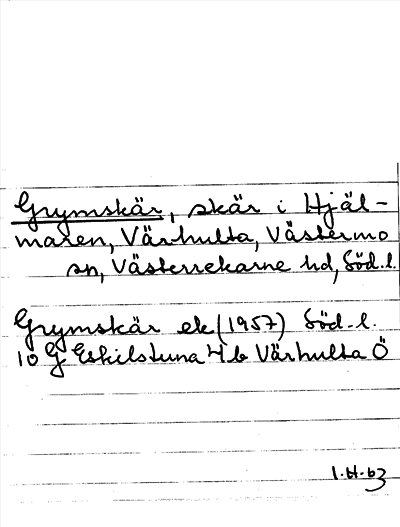 Grymskär, skär i Hjäl-
maren, Värhulta, Västermo
sn, Västerrekarne hd, Söd.l.
Grymskär ek (1957) Söd.l.
10 G Eskilstuna 4 b Värhulta Ö